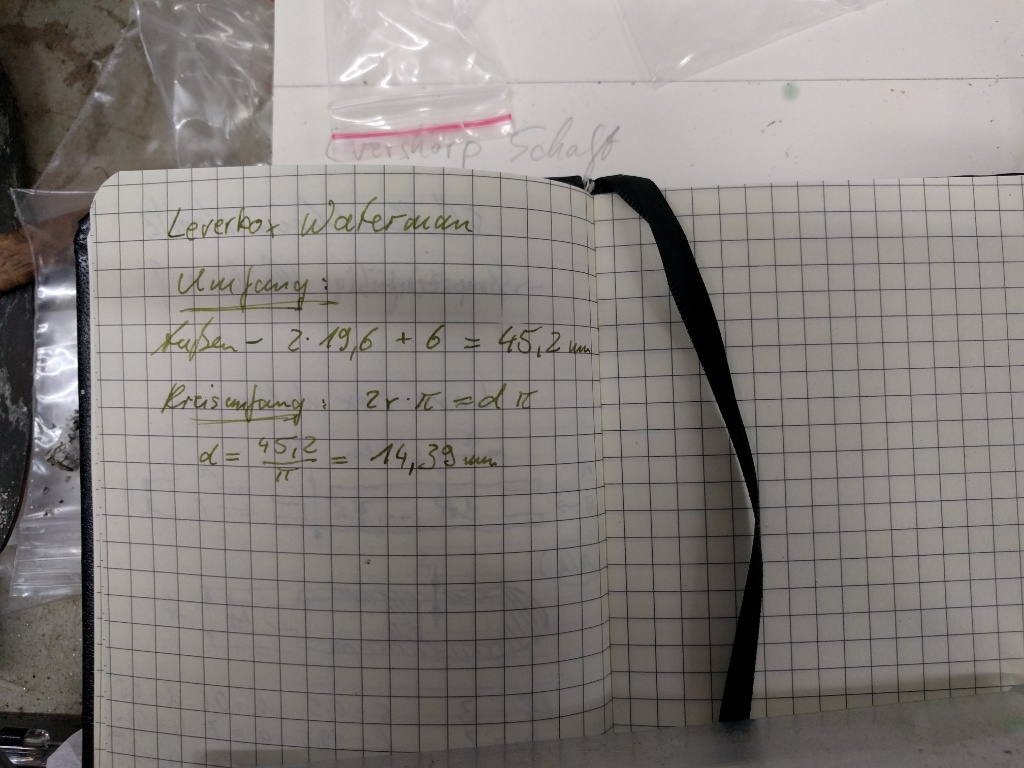 Eversharp Schaft
Leverbox Waterman
Umfang:
Außen - 2·19,6 + 6 = 45,2 mm
Kreisumfang: 2r·π = d π
d = 45,2/π = 14,39 mm